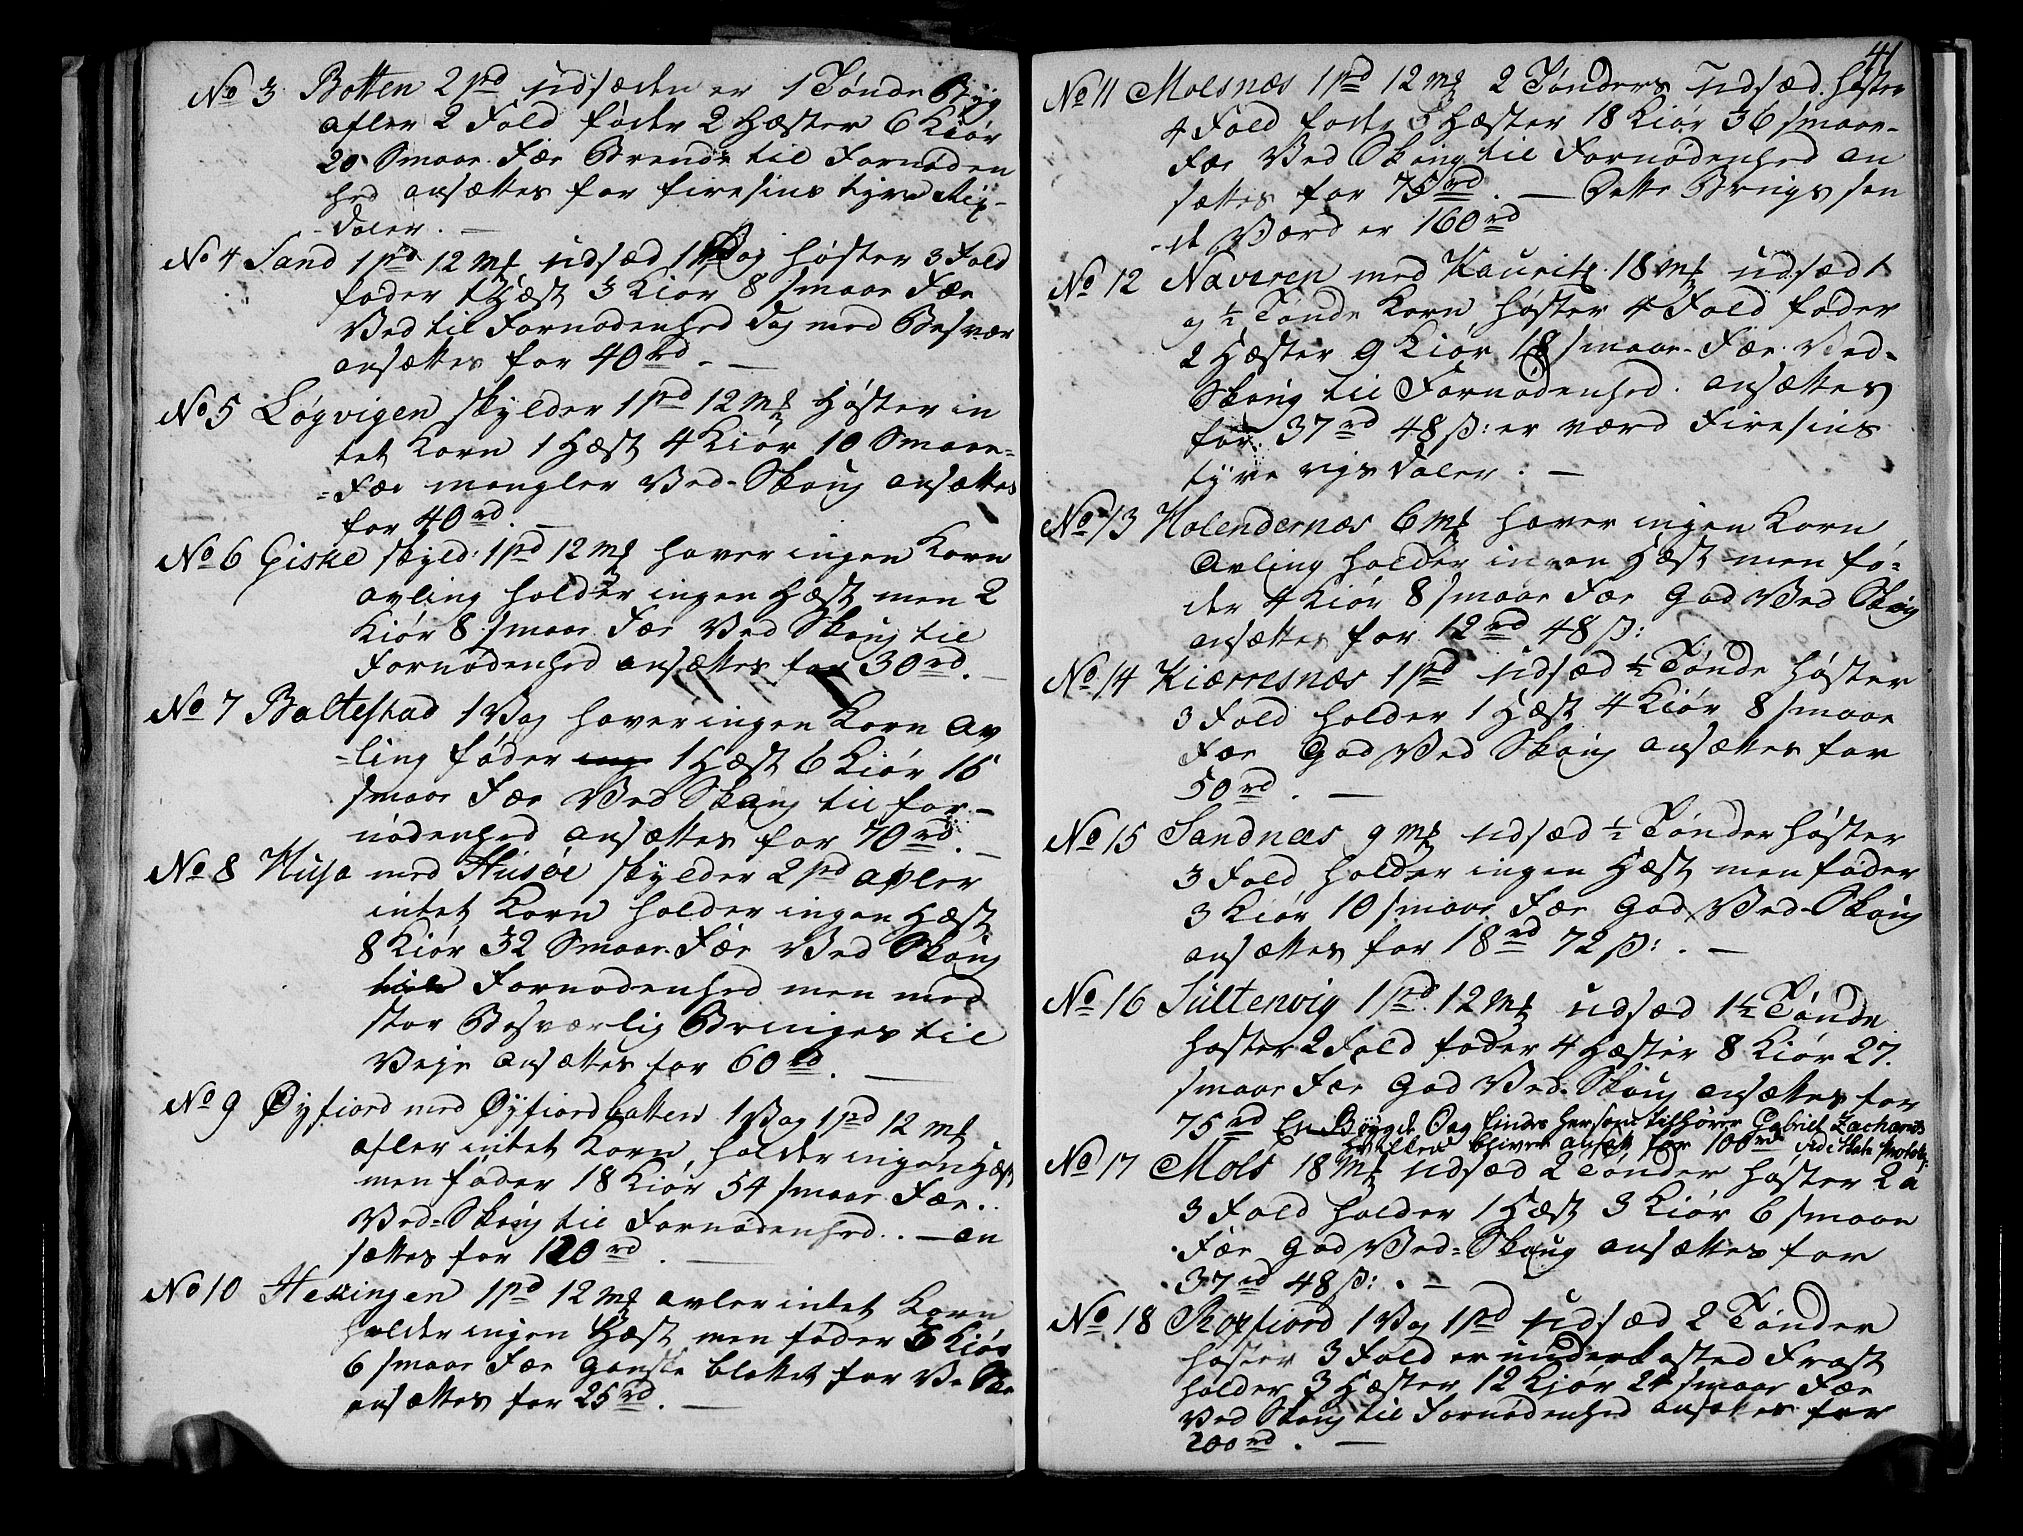 No 3 Botten 2 pd udsæden er 1 Tønde Byg
afler 2 Fold føder 2 Hæster 6 Kiør
20 Smaae Fæe Brende til Fornøden
hed ansættes for firesins tyve Rix-
daler. —
No 4 Sand 1 pd 12 mk udsæd 1 Vog høster 3 Fold
føder 1 Hæst 3 Kiør 8 smaae Fæe
Ved til Fornødenhed dog med Besvær
ansættes for 40 rd. —
No 5 Løgvigen skylder 1 pd 12 mk Høster in
tet Korn 1 Hæst 4 Kiør 10 Smaae-
-Fæe mangler Ved-Skoug ansættes
for 40 rd. —
No 6 Giske skyld: 1 pd 12 mk haver ingen Korn
avling holder ingen Hæst men 2
Kiør 8 smaae Fæe Ved Skoug til
Fornødenhed ansættes for 30 rd. —
No 7 Baltestad 1 Vog haver ingen Korn Av
-ling føder ing 1 Hæst 6 Kiør 16
smaae Fæe Ved Skoug til for-
nødenhed ansættes for 70 rd. —
No 8 Husa med Husøe skylder 2 pd avler
intet Korn holder ingen Hæst
8 Kiør 32 Smaae Fæe Ved Skoug
til Fornødenhed men med
stor Besværlig Bringes til
Veye ansættes for 60 rd. —
No 9 Øyfiord med Øyfiordbotten 1 Vog 1 pd 12 mk
afler intet Korn, holder ingen Hæst
men føder 18 Kiør 54 smaae Fæe..
Ved-Skoug til Fornødenhed.. — an
sættes for 120 rd. —
No 10 Hekingen 1 pd 12 mk avler intet Korn
holder ingen Hæst men føder 3 Kiør
6 smaae Fæe ganske blottet for Ve Sko
ansættes for 25 rd. —
41
No 11 Molsnæs 1 pd 12 mk 2 Tønders Udsæd høster
4 Fold føder 3 Hæster 18 Kiør 36 smaae-
Fæe Ved Skoug til Fornødenhed an
sættes for 75 rd. — Dette Brugs san
de Værd er 160 rd
No 12 Naveren med Kaurits 18 mk udsæd 1
og ½ Tønde Korn høster 4 Fold føder
2 Hæster 9 Kiør 18 smaae-Fæe. Ved-
Skoug til Fornødenhed. ansættes
for. 37 rd 48 ß: er værd Firesins
tyve rigsdaler. —
No 13 Holendernæs 6 mk haver ingen Korn
Avling holder ingen Hæst men fø-
der 4 Kiør 8 smaae Fæe God Ved Skoug
ansættes for 12 rd 48 ß:
No 14 Kiærresnæs 1 pd udsæd ½ Tønde høster
3 Fold holder 1 Hæst 4 Kiør 8 smaae
Fæe God Ved Skoug ansættes for
50 rd. —
No 15 Sandnæs 9 mk udsæd ½ Tønder høster
3 Fold holder ingen Hæst men føder
3 Kiør 10 smaae Fæe God Ved-Skoug
ansættes for 18 rd 72 ß: . —
No 16 Sultenvig 1 pd 12 mk udsæd 1½ Tønde
høster 2 Fold føder 4 Hæster 8 Kiør 27.
smaae Fæe God Ved-Skoug ansættes for
75 rd En Bøygde Sag findes her som tilhører Gabriel Zacharias
hvilken bliver ansat for 100 rd
No 17 Mols 18 mk udsæd 2 Tønder høster 2 a
3 Fold holder 1 Hæst 3 Kiør 6 smaae
Fæe God Ved-Skoug ansættes for
37 rd 48 ß: . —
No 18 Roxfiord 1 Vog 1 pd udsæd 2 Tønder
høster 3 Fold er underkasted Frost
holder 3 Hæster 12 Kjør 24 smaae Fæe
Ved Skoug til Fornødenhed ansættes for
200 rd. —